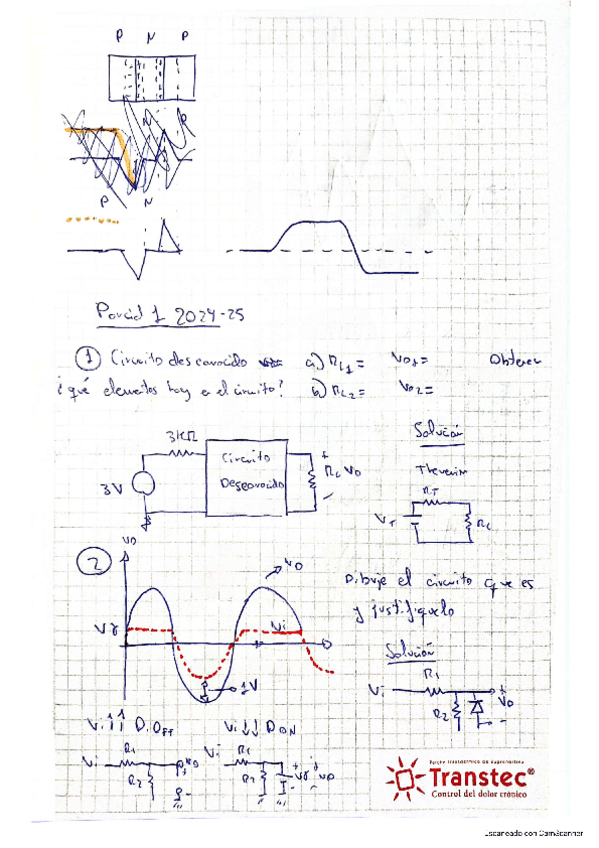 P N P
N P
P N
Parcial 1 2024-25
① Circuito desconocido a) RL1= Vo1= Obtener
¿qué elementos hay en el circuito? b) RL2= Vo2=
3KΩ
Circuito
Desconocido
3V
+
RL Vo
-
Solución
Thevenin
RT
VT
RL
②
Vo
Vo
Vγ
Vi
1V
Dibuje el circuito que es
y justifíquelo
Solución
Vi R1 + Vo
R2 -
Vi↑↑ D.OFF Vi↓↓ DON
Vi R1 Vo Vi R1
R2 R2 Vγ Vo
Transtec®
Control del dolor crónico
Escaneado con CamScanner